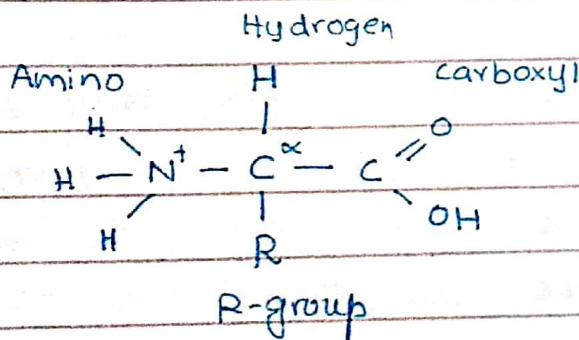 Hydrogen
Amino H Carboxyl
H O
H — N⁺ — C^α — C
H R OH
R-group